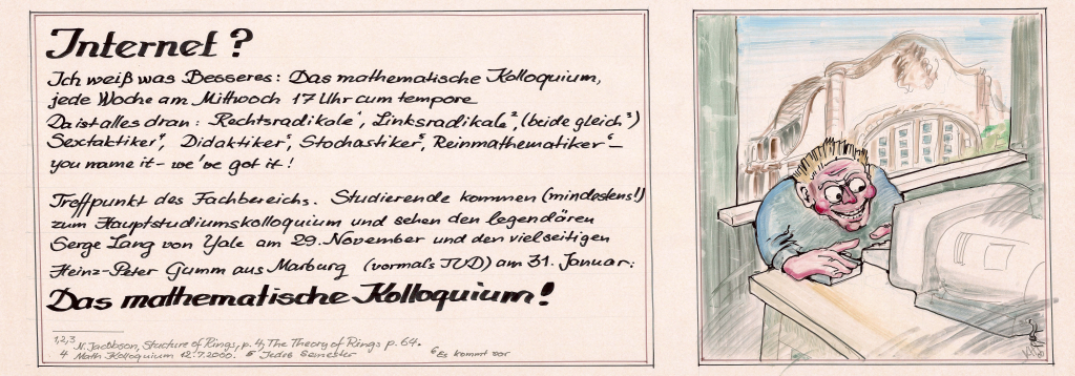 Internet?
Ich weiß was Besseres: Das mathematische Kolloquium,
jede Woche am Mittwoch 17 Uhr cum tempore
Da ist alles dran: Rechtsradikale¹, Linksradikale², (beide gleich³)
Sextaktiker⁴, Didaktiker⁵, Stochastiker⁵, Reinmathematiker⁶ –
you name it – we've got it!
Treffpunkt des Fachbereichs. Studierende kommen (mindestens!)
zum Hauptstudiumskolloquium und sehen den legendären
Serge Lang von Yale am 29. November und den vielseitigen
Heinz-Peter Gumm aus Marburg (vormals TUD) am 31. Januar:
Das mathematische Kolloquium!
1,2,3 N. Jacobson, Structure of Rings, p. 4, The Theory of Rings p. 64.
4 Math Kolloquium 12.7.2000. 5 Jedes Semester 6 Es kommt vor